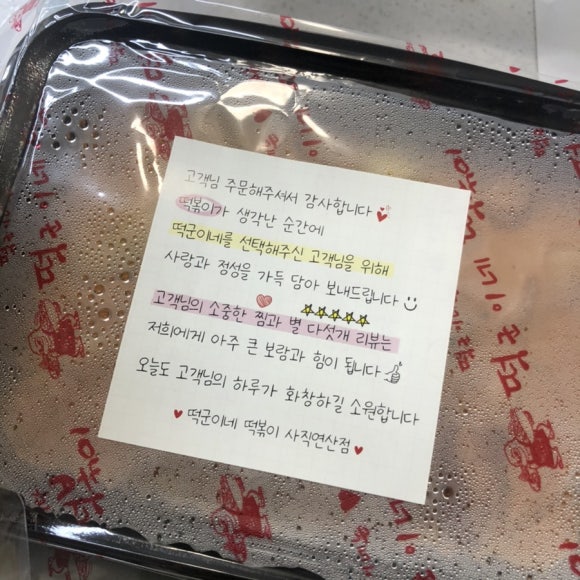 고객님 주문해주셔서 감사합니다
떡볶이가 생각난 순간에
떡군이네를 선택해주신 고객님을 위해
사랑과 정성을 가득 담아 보내드립니다
고객님의 소중한 찜과 별 다섯개 리뷰는
저희에게 아주 큰 보람과 힘이 됩니다
오늘도 고객님의 하루가 화창하길 소원합니다
떡군이네 떡볶이 사직연산점